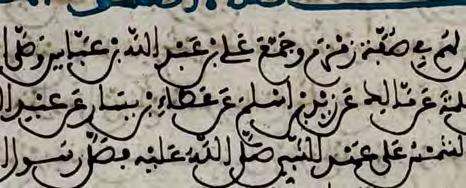 لهم في صفة زمزم وجمع علي بن عبد الله بن عباس وصلى ا
لمة عن مالك عن زيد بن اسلم عن عطاء بن يسار عن عبد ا
الشمس على عهد النبي صلى الله عليه فصلى رسول ا